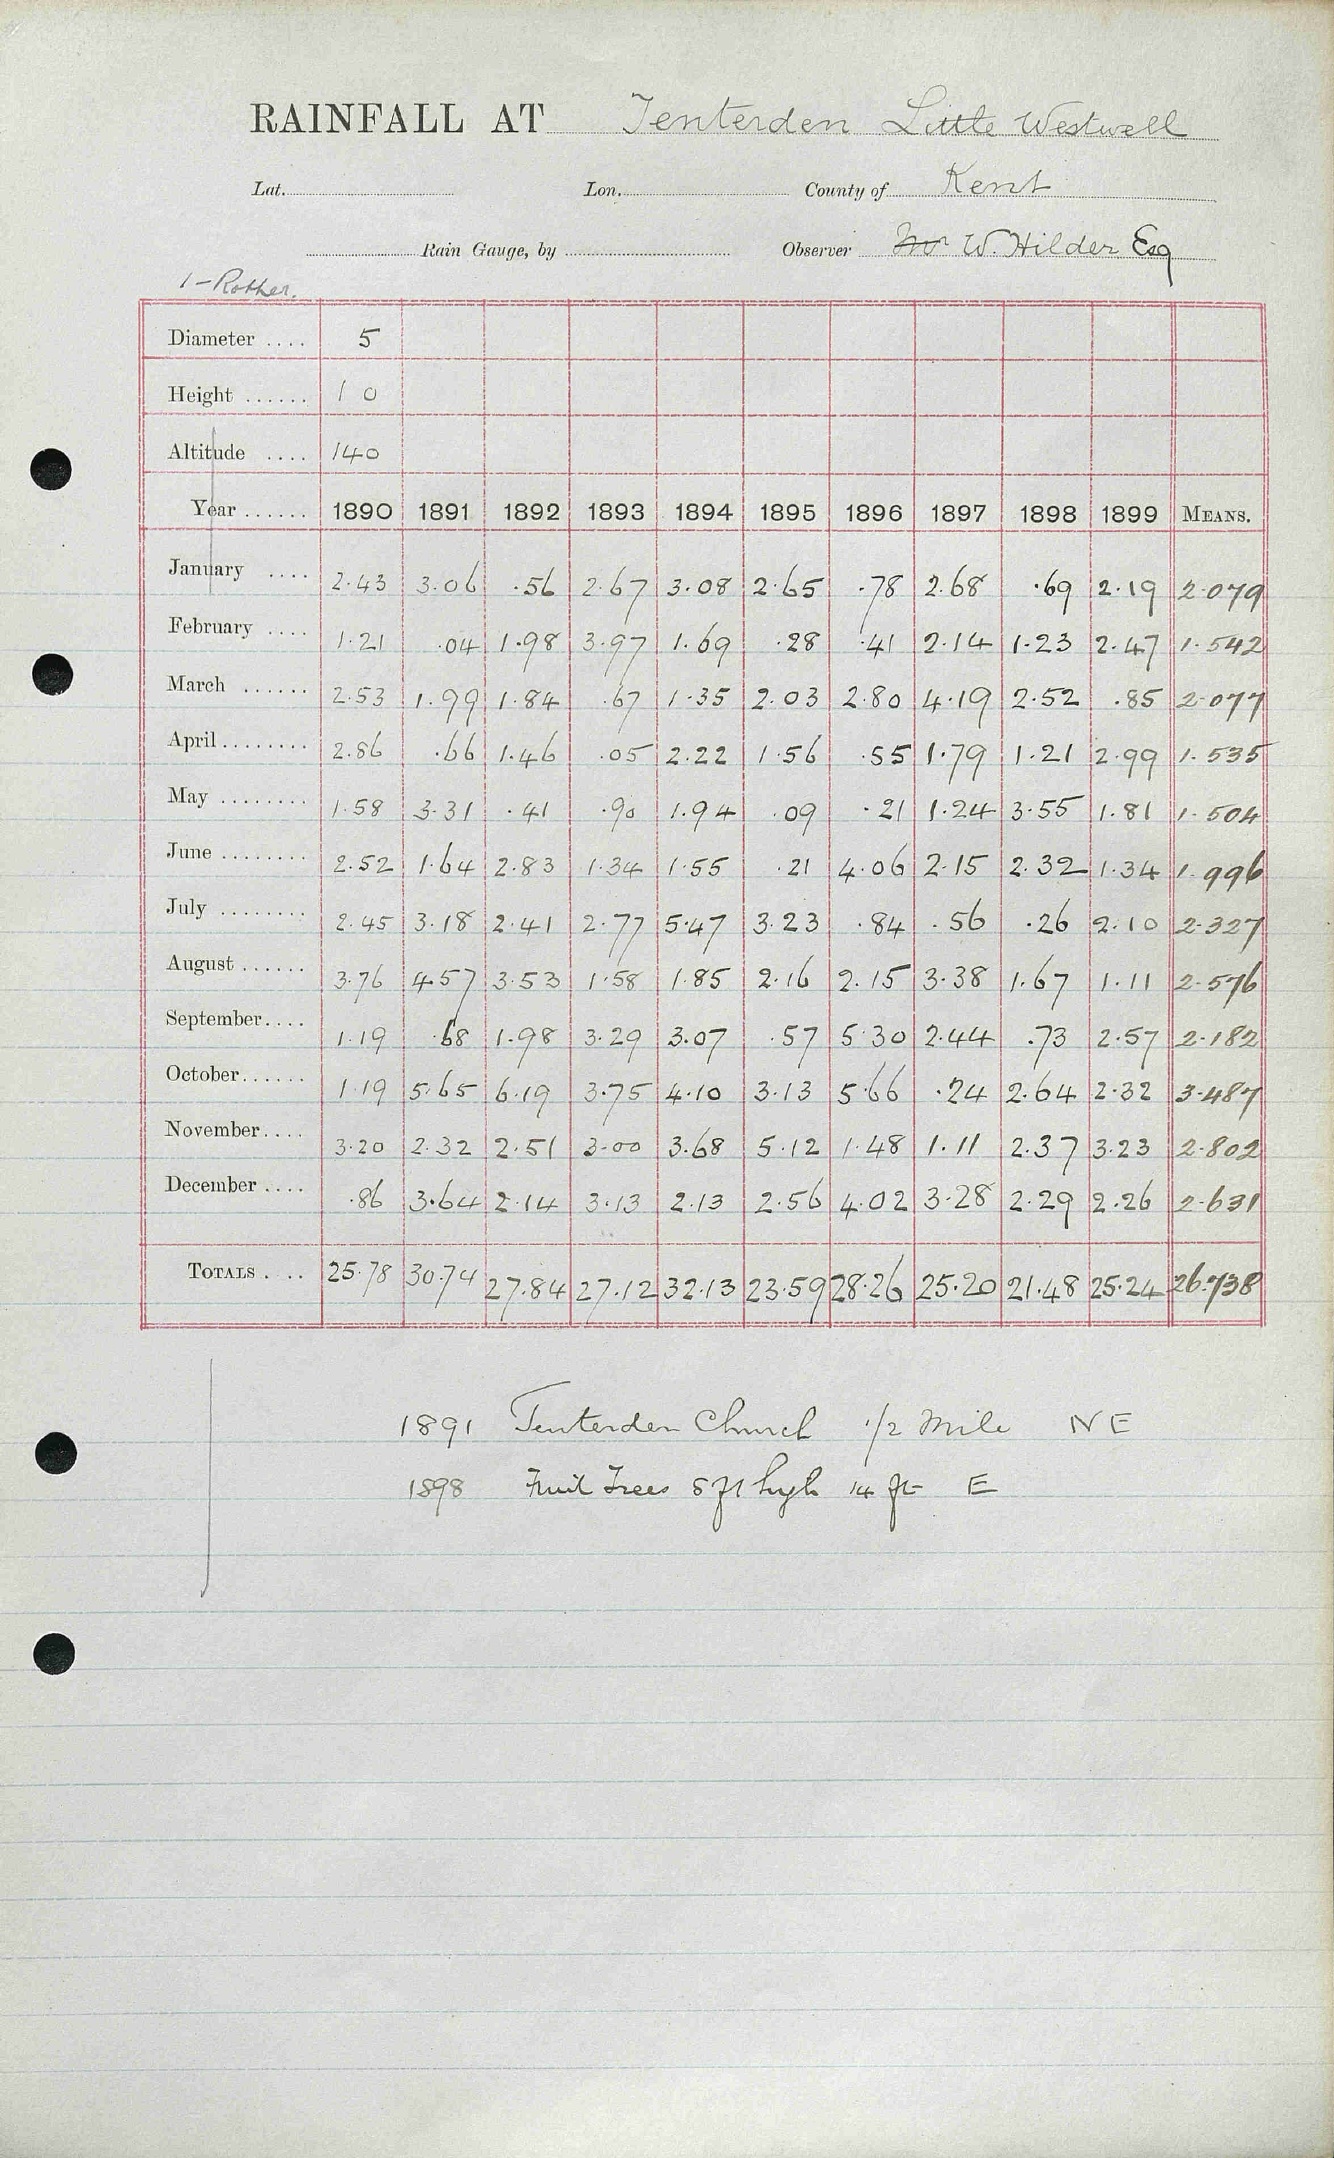 RAINFALL AT Tenterden Little Westwell
Lat. Lon. County of Kent
Rain Gauge, by Observer Mr W. Hilder Esq
1-Rother.
Diameter .... 5
Height ...... 1 0
Altitude .... 140
Year ...... 1890 1891 1892 1893 1894 1895 1896 1897 1898 1899 MEANS.
January .... 2.43 3.06 .56 2.67 3.08 2.65 .78 2.68 .69 2.19 2.079
February .... 1.21 .04 1.98 3.97 1.69 .28 .41 2.14 1.23 2.47 1.542
March ...... 2.53 1.99 1.84 .67 1.35 2.03 2.80 4.19 2.52 .85 2.077
April ........ 2.86 .66 1.46 .05 2.22 1.56 .55 1.79 1.21 2.99 1.535
May ........ 1.58 3.31 .41 .90 1.94 .09 .21 1.24 3.55 1.81 1.504
June ........ 2.52 1.64 2.83 1.34 1.55 .21 4.06 2.15 2.32 1.34 1.996
July ........ 2.45 3.18 2.41 2.77 5.47 3.23 .84 .56 .26 2.10 2.327
August ...... 3.76 4.57 3.53 1.58 1.85 2.16 2.15 3.38 1.67 1.11 2.576
September .... 1.19 .68 1.98 3.29 3.07 .57 5.30 2.44 .73 2.57 2.182
October ...... 1.19 5.65 6.19 3.75 4.10 3.13 5.66 .24 2.64 2.32 3.487
November .... 3.20 2.32 2.51 3.00 3.68 5.12 1.48 1.11 2.37 3.23 2.802
December .... .86 3.64 2.14 3.13 2.13 2.56 4.02 3.28 2.29 2.26 2.631
TOTALS . .. 25.78 30.74 27.84 27.12 32.13 23.59 28.26 25.20 21.48 25.24 26.738
1891 Tenterden Church 1/2 Mile NE
1898 Fruit Trees 8 ft high 14 ft E